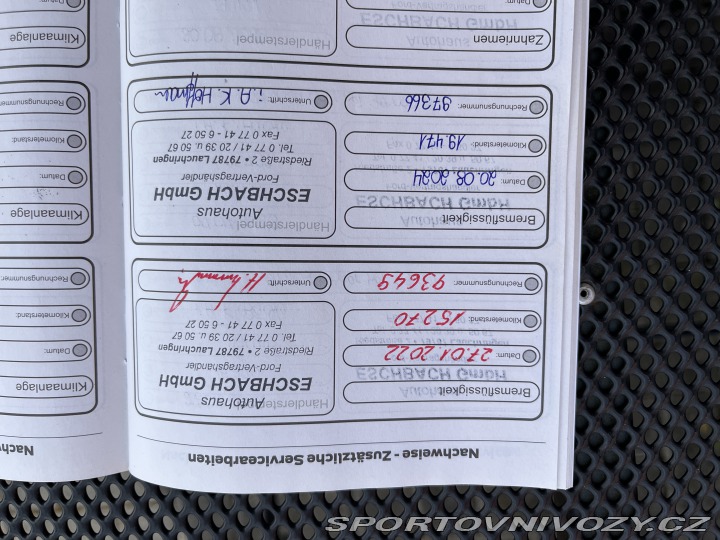 Nachweise - Zusätzliche Servicearbeiten
Bremsflüssigkeit
Datum: 27.01.2022
Kilometerstand: 15270
Rechnungsnummer: 93649
Händlerstempel
Autohaus
ESCHBACH GmbH
Ford-Vertragshändler
Riedstraße 2 • 79787 Lauchringen
Tel. 0 77 41 / 20 39 u. 50 67
Fax 0 77 41 - 6 50 27
Unterschrift:
Bremsflüssigkeit
Datum: 20.08.2024
Kilometerstand: 19.471
Rechnungsnummer: 97366
Händlerstempel
Autohaus
ESCHBACH GmbH
Ford-Vertragshändler
Riedstraße 2 • 79787 Lauchringen
Tel. 0 77 41 / 20 39 u. 50 67
Fax 0 77 41 - 6 50 27
Unterschrift: i.A. K. Hoffmann
Zahnriemen
Händlerstempel
Nachw
Klimaanlage
Datum:
Kilometerstand:
Rechnungsnummer:
Klimaanlage
Datum:
Kilometerstand:
Rechnungsnummer:
Klimaanlage
SPORTOVNIVOZY.CZ